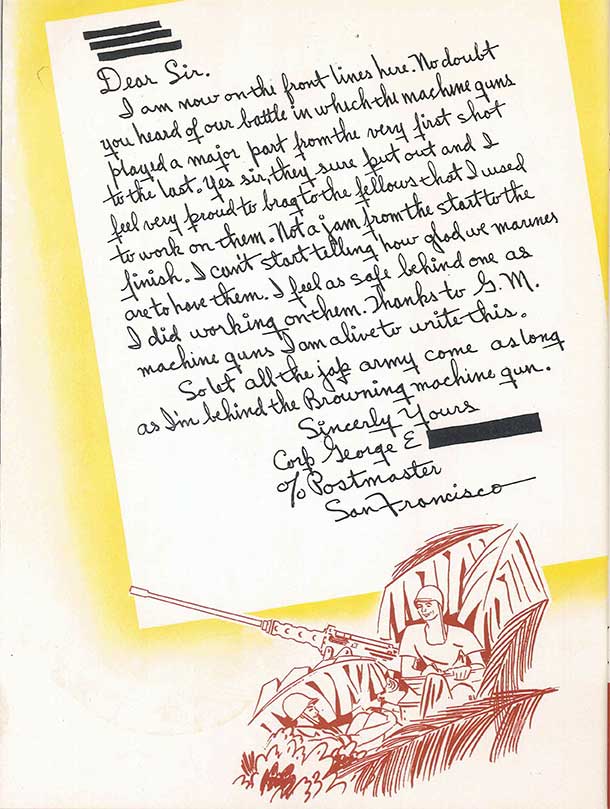 Dear Sir.
I am now on the front lines here. No doubt
you heard of our battle in which the machine guns
played a major part from the very first shot
to the last. Yes sir, they sure put out and I
feel very proud to brag to the fellows that I used
to work on them. Not a jam from the start to the
finish. I can't start telling how glad we marines
are to have them. I feel as safe behind one as
I did working on them. Thanks to G.M.
machine guns I am alive to write this.
So let all the jap army come as long
as I'm behind the Browning machine gun.
Sincerly Yours
Corp George E
c/o Postmaster
San Francisco